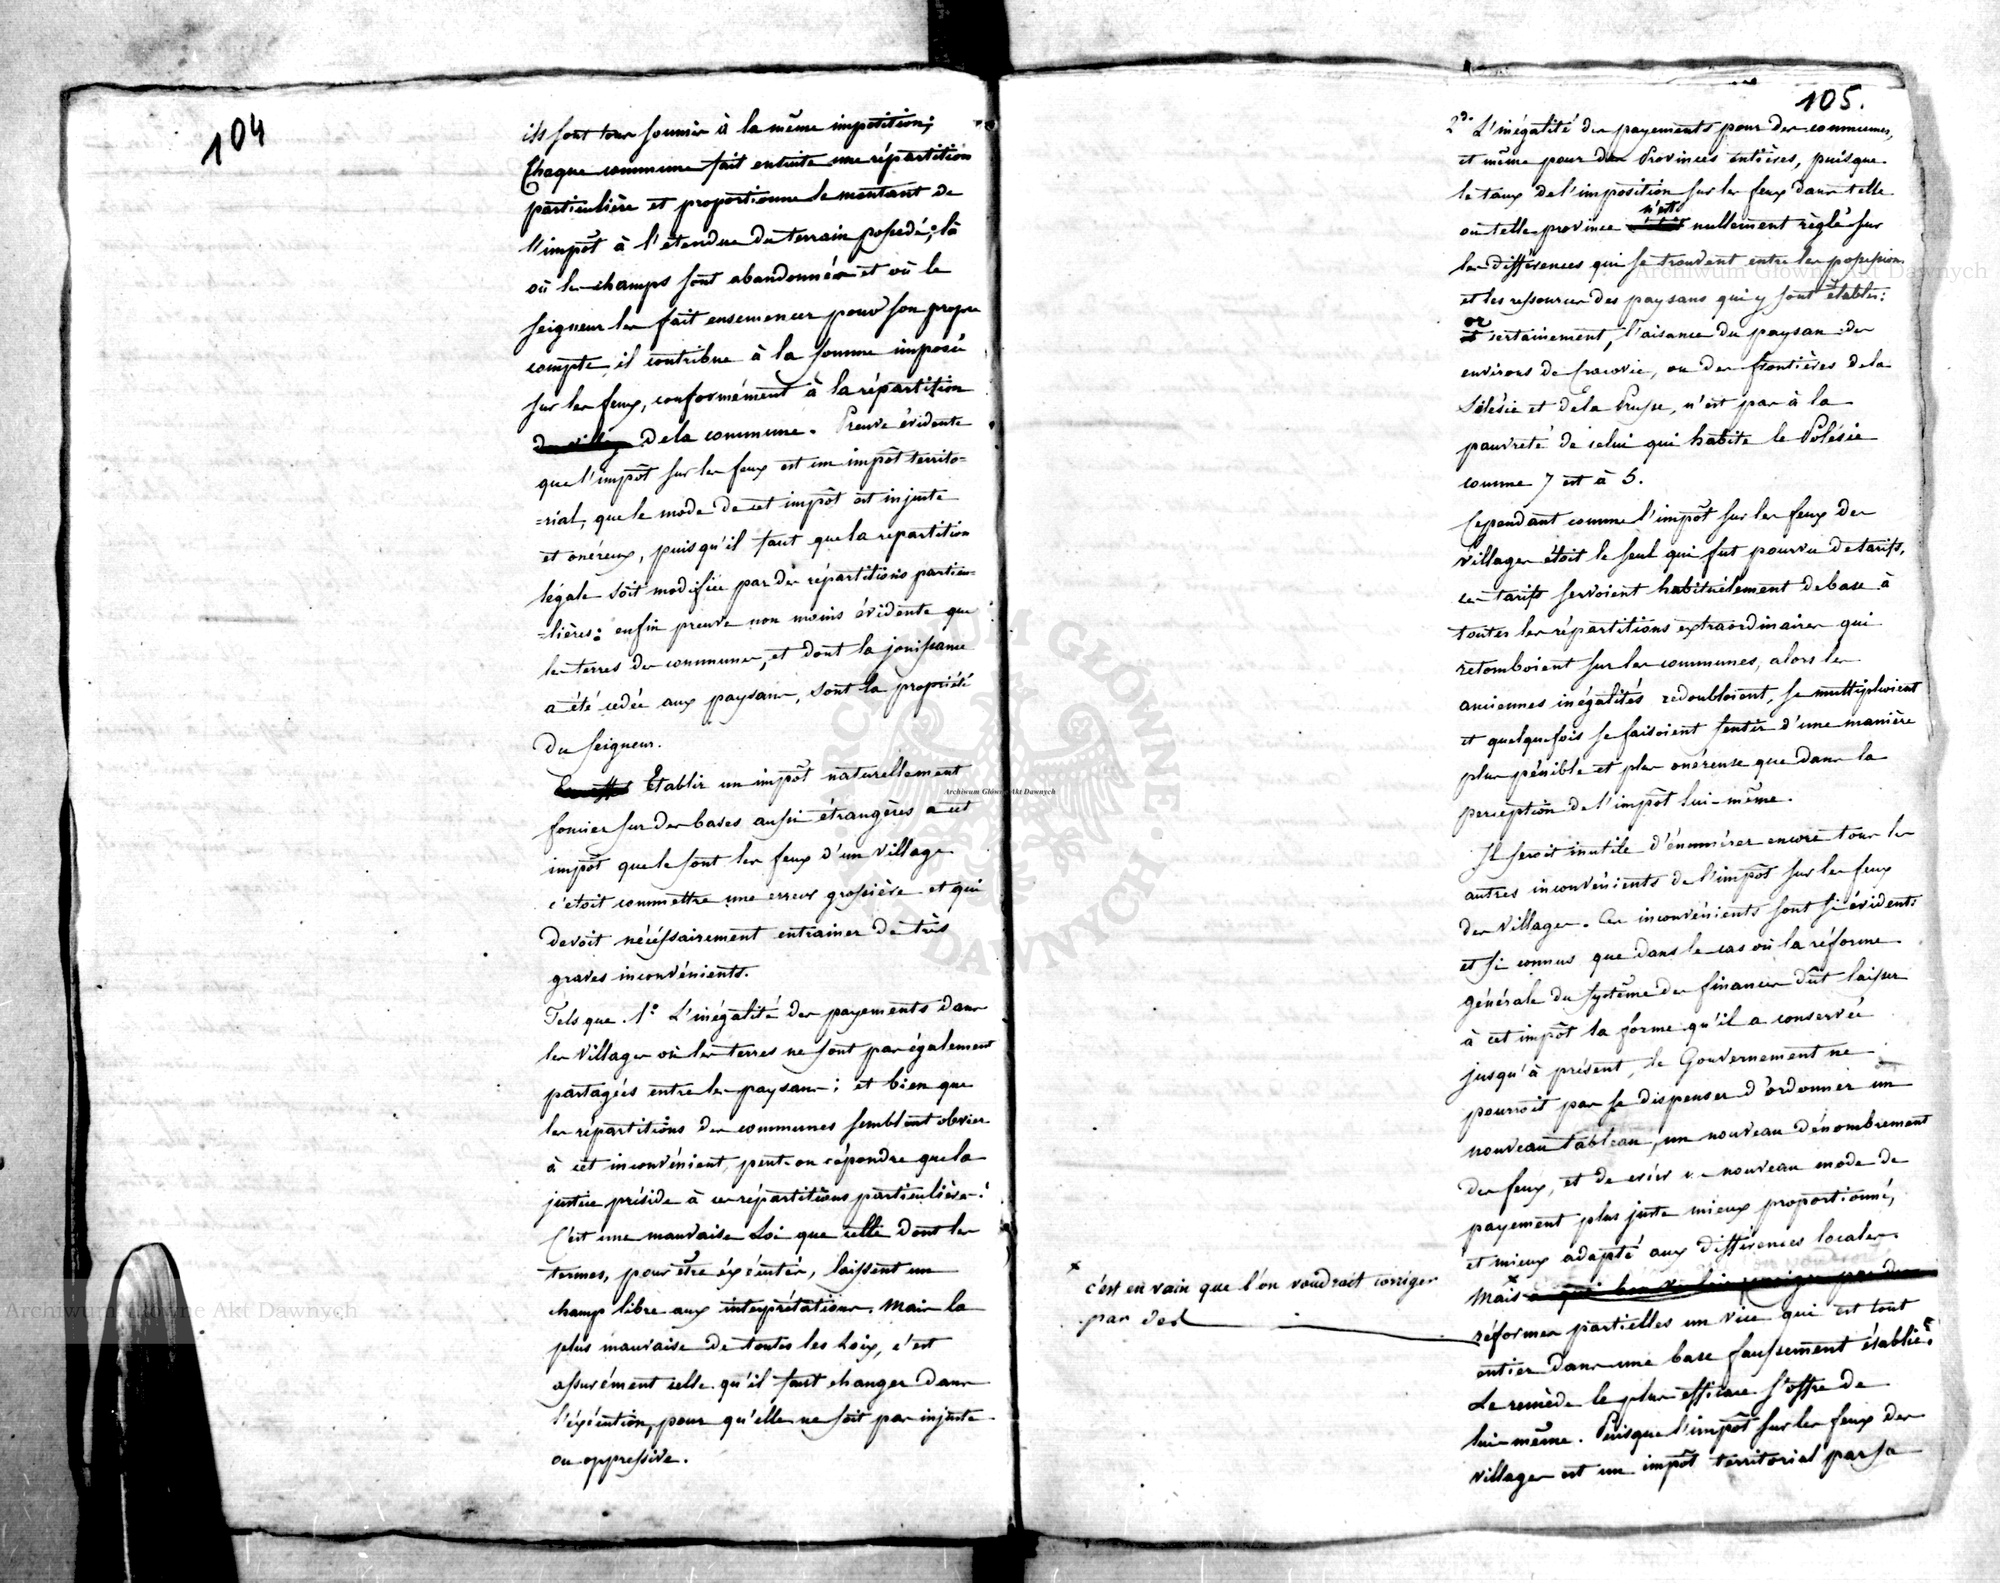 104
ils sont tous soumis à la même imposition;
Chaque commune fait ensuite une répartition
particulière et proportionne le montant de
l'impôt à l'étendue du terrain possédé; là
où les champs sont abandonnés et où le
seigneur les fait ensemencer pour son propre
compte, il contribue à la somme imposée
sur les feux, conformément à la répartition
de la commune. Preuve évidente
que l'impôt sur les feux est un impôt territo=
=rial, que le mode de cet impôt est injuste
et onéreux, puisqu'il faut que la répartition
légale soit modifiée par des répartitions particu=
=lières: enfin preuve non moins évidente que
les terres des communes, et dont la jouissance
a été cedée aux paysans, sont la propriété
du seigneur.
Etablir un impôt naturellement
foncier sur des bases aussi étrangères a cet
impôt que le sont les feux d'un village
c'étoit commettre une erreur grossière et qui
devoit nécéssairement entrainer de très
graves inconvénients.
Tels que. 1º L'inégalité des payements dans
les villages où les terres ne sont pas également
partagées entre les paysans; et bien que
les répartitions des communes semblent obvier
à cet inconvénient, peut-on répondre que la
justice préside à ces répartitions particulières:
C'est une mauvaise Loi que celle dont les
termes, pour être éxécutés, laissent un
champ libre aux interprétations. Mais la
plus mauvaise de toutes les Loix, c'est
assurément celle qu'il faut changer dans
l'éxécution, pour qu'elle ne soit pas injuste
ou oppressive.
105.
2do L'inégalité des payements pour des communes,
et même pour des Provinces entières, puisque
le taux de l'imposition sur les feux dans telle
ou telle province n'est nullement règlé sur
les différences qui se trouvent entre les possessions
et les ressources des paysans qui y sont établis:
or certainement, l'aisance du paysan des
environs de Cracovie, ou des frontières de la
Silésie et de la Prusse, n'est pas à la
pauvreté de celui qui habite le Polésie
comme 7 est à 5.
Cependant comme l'impôt sur les feux des
villages étoit le seul qui fut pourvu de tarifs,
ces tarifs servoient habituèlement de base à
toutes les répartitions extraordinaires qui
retomboient sur les communes, alors les
anciennes inégalités redoubloient, se multiplioient
et quelquefois se faisoient sentir d'une manière
plus pénible et plus onéreuse que dans la
perception de l'impôt lui-même.
Il seroit inutile d'énumérer encore tous les
autres inconvénients de l'impôt sur les feux
des villages. Ces inconvénients sont si évidents
et si connus que dans le cas où la réforme
générale du système des finances dût laisser
à cet impôt la forme qu'il a conservée
jusqu'à présent, le Gouvernement ne
pourroit pas se dispenser d'ordonner un
nouveau tableau, un nouveau dénombrement
des feux, et de créer un nouveau mode de
payement plus juste mieux proportionné,
et mieux adapté aux différences locales.
Mais x
x c'est en vain que l'on voudrait corriger
par des
réformes partielles un vice qui est tout
entier dans une base faussement établie:
Le remède le plus efficace s'offre de
lui-même. Puisque l'impôt sur les feux des
villages est un impôt territorial par sa
Archiwum Główne Akt Dawnych